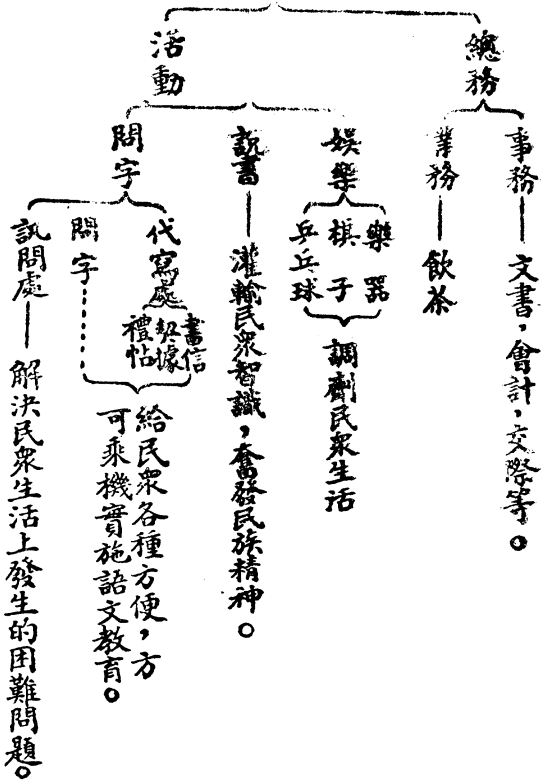 總務
事務
文書，會計，交際等。
業務
飲茶
活動
娛樂
樂器
棋子
乒乓球
調劑民衆生活
説書
灌輸民衆智識，奮發民族精神。
問字
代寫處
書信
契據
禮帖
問字
給民衆各種方便，方
可乘機實施語文教育。
訊問處
解決民衆生活上發生的困難問題。